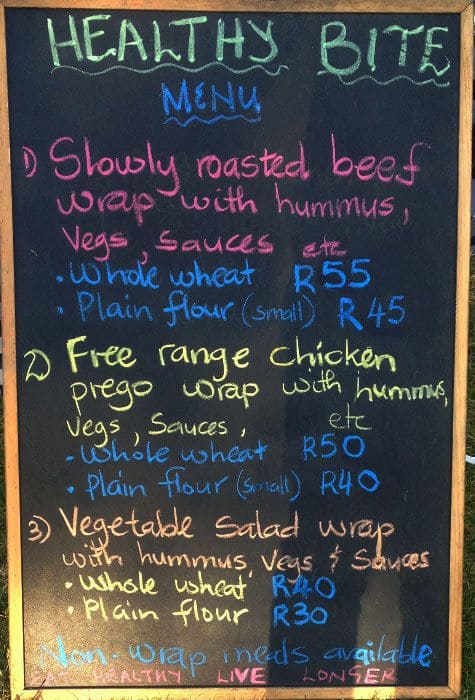 HEALTHY BITE
MENU
1) Slowly roasted beef
wrap with hummus,
Vegs, sauces etc
• Whole wheat R55
• Plain flour (small) R45
2) Free range chicken
prego wrap with hummus,
vegs, Sauces, etc
- Whole wheat R50
• Plain flour (small) R40
3) Vegetable Salad wrap
with hummus, Vegs & Sauces
• Whole wheat R40
• Plain flour R30
Non-wrap meals available
HEALTHY LIVE LONGER